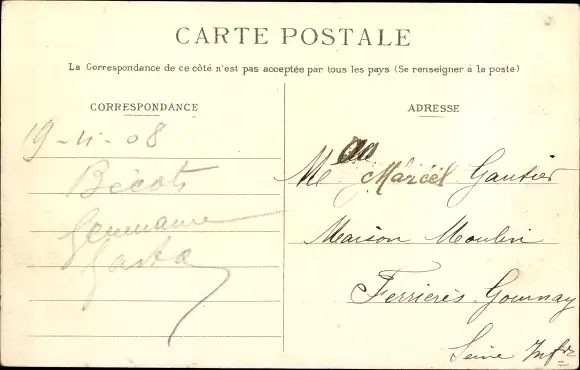 CARTE POSTALE
La Correspondance de ce côté n'est pas acceptée par tous les pays (Se renseigner à la poste)
CORRESPONDANCE
19-11-08
Bécots
Germaine
ADRESSE
Marcël Gautier
Maison Moulin
Ferrières Gournay
Seine Infre